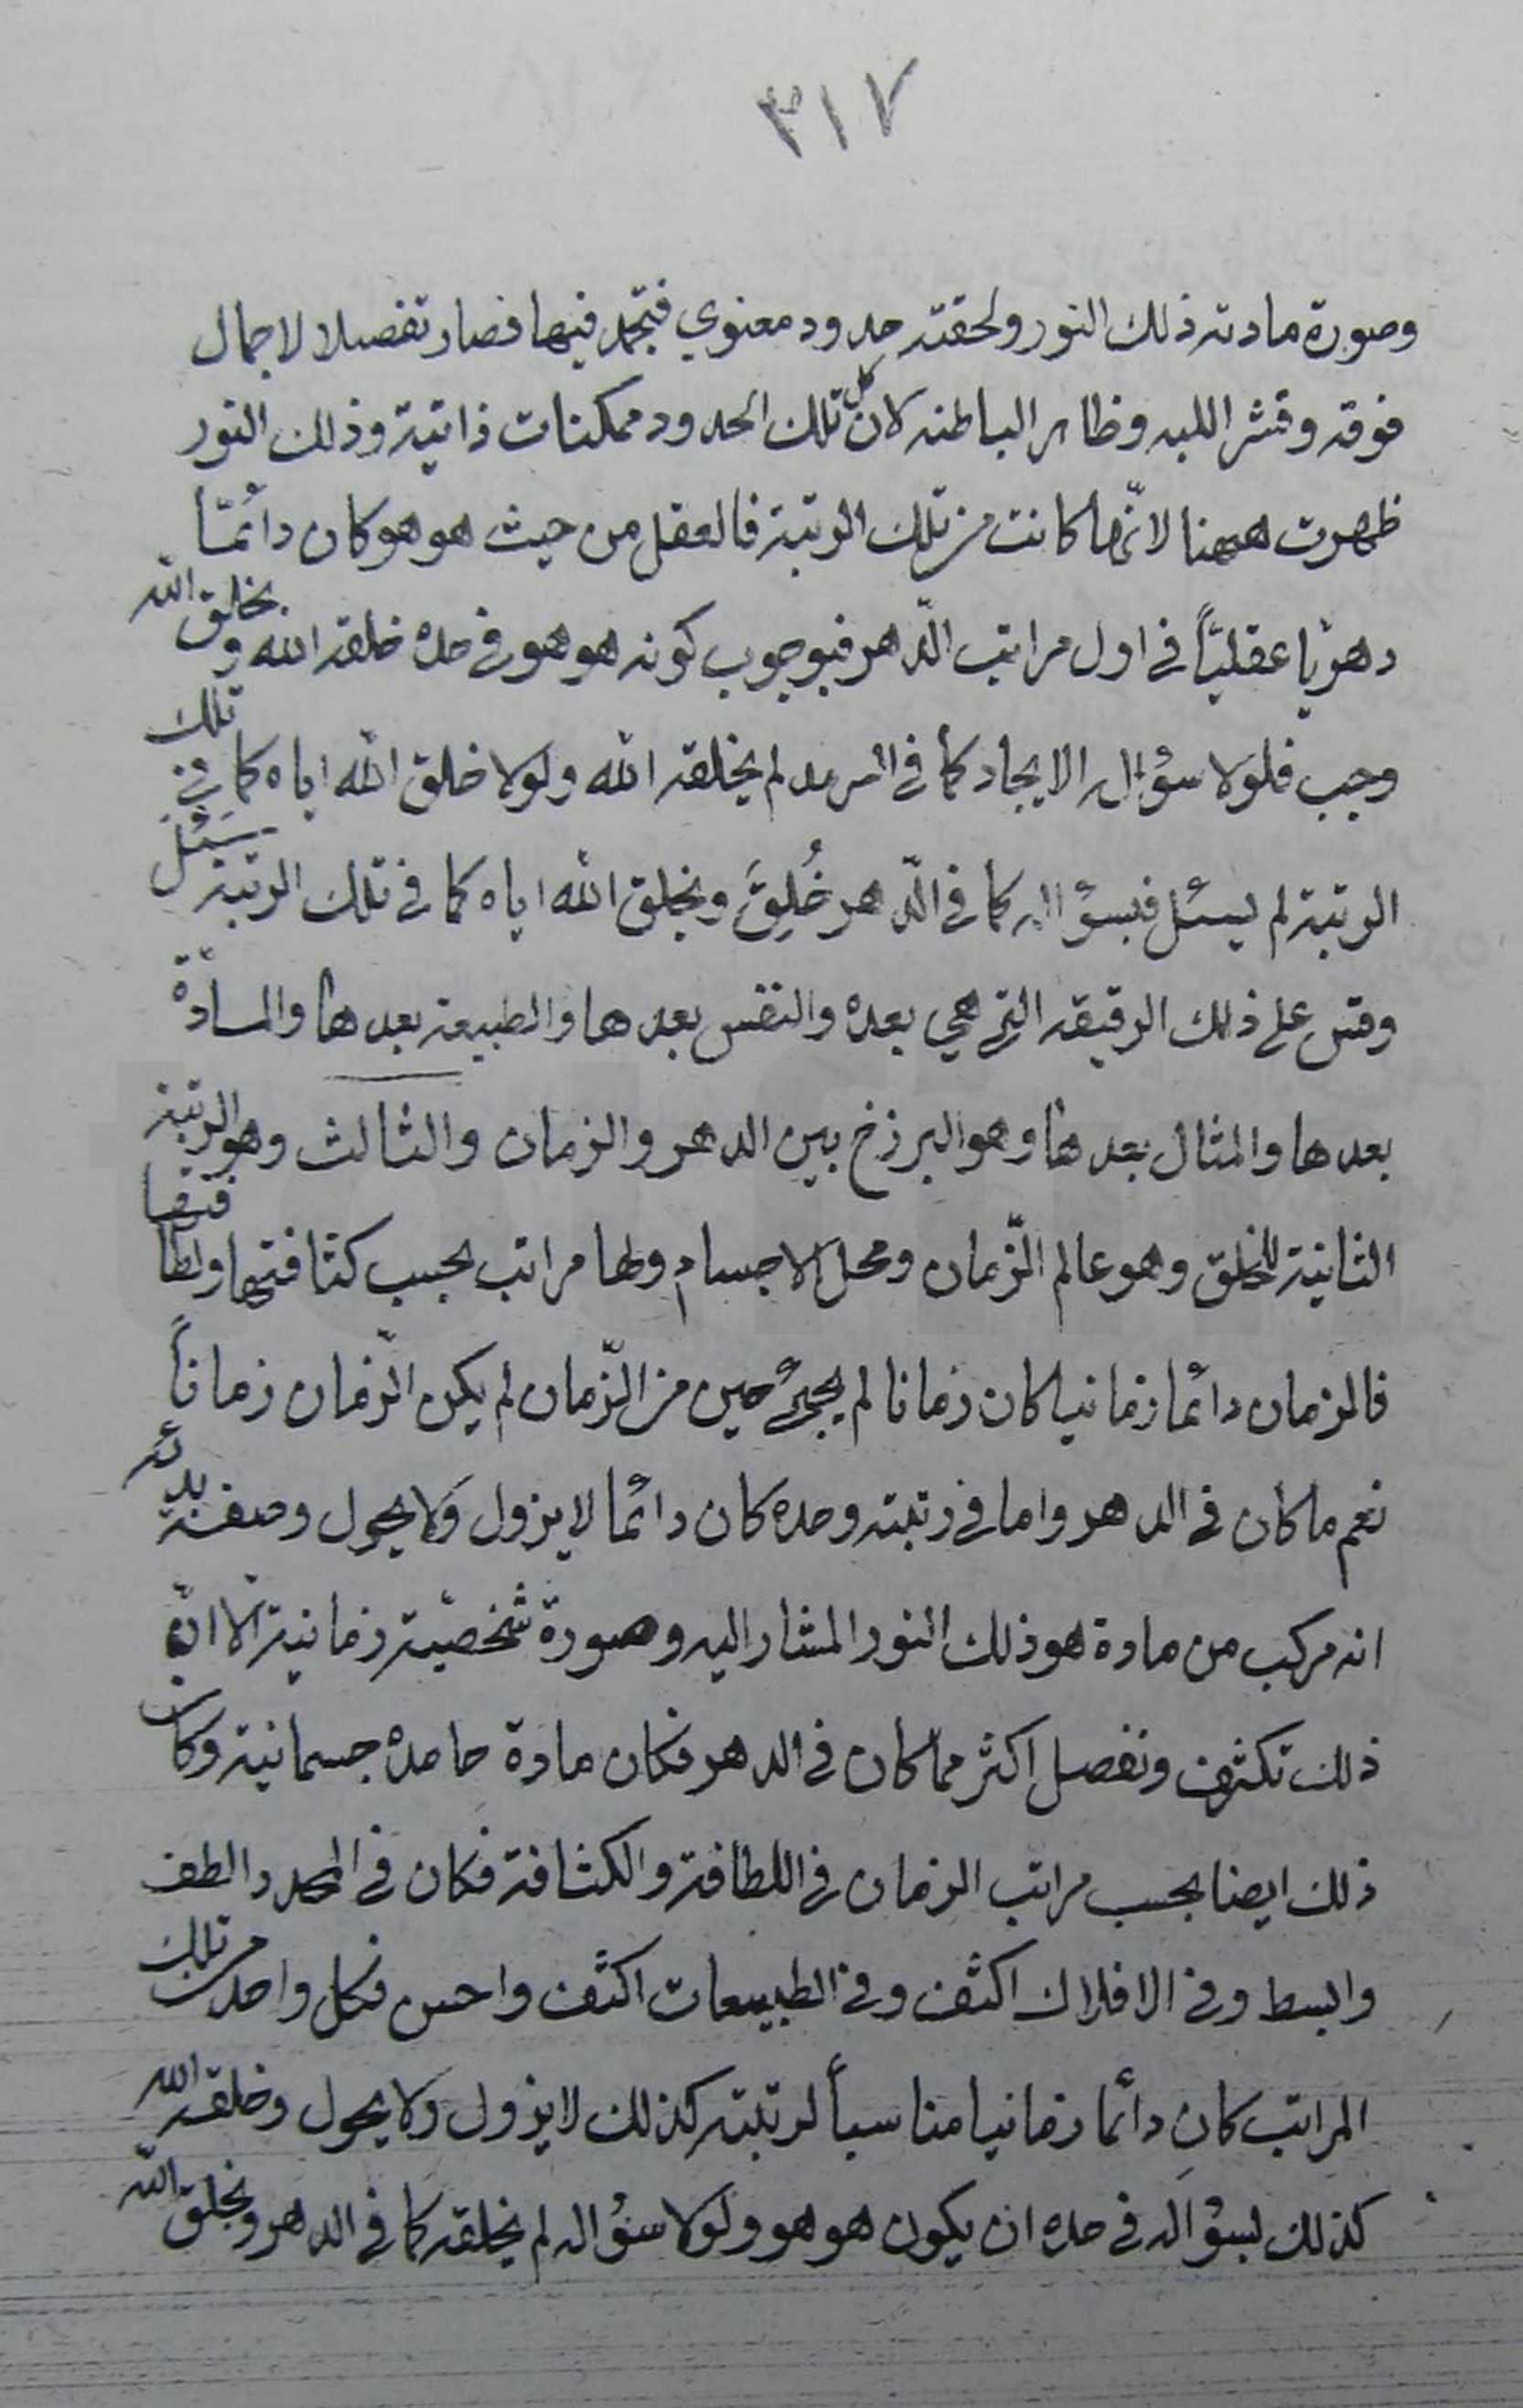 ٣١٧
وصورة مادته ذلك النور ولحقته حدود معنوي فتجمد فيها فصار تفصيلا لاجمال
فوقه وقشر اللبه وظاهر الباطنه لان كل تلك الحدود ممكنات ذاتية وذلك النور
ظهرت ههنا لانّها كانت من تلك الرتبة فالعقل من حيث هو هو كان دائمًا
دهريّا عقليّاً في اول مراتب الدّهر فبوجوب كونه هو هو في حده خلقه الله و بخلق الله
وجب فلولا سؤاله الايجاد كما في السرمد لم يخلقه الله ولولا خلق الله اياه كما في تلك
الرتبة لم يسئل فبسؤاله كما في الدّهر خُلِقَ وبخلق الله اياه كما في تلك الرتبة سَئل
وقس على ذلك الرقيقه التي هي بعده والنفس بعدها والطبيعة بعدها والمادّة
بعدها والمثال بعدها وهو البرزخ بين الدهر والزمان والثالث وهو الرتبة
الثانية للخلق وهو عالم الزّمان ومحل الاجسام ولها مراتب بحسب كثافتها ولطافتها
فالزمان دائما زمانيا كان زمانا لم يجئ حين من الزّمان لم يكن الزّمان زماناً
نعم ما كان في الدهر واما في رتبته وحده كان دائما لا يزول ولا يحول وصفة بدئه
انه مركب من مادة هو ذلك النور المشار اليه وصورة شخصيّة زمانية الّا انّ
ذلك تكثف وتفصل اكثر ممّا كان في الدهر فكان مادة جامدة جسمانية وكان
ذلك ايضا بحسب مراتب الزمان في اللطافة والكثافة فكان في المحدد الطف
وابسط وفي الافلاك اكثف وفي الطبيعات اكثف واحس فكل واحد من تلك
المراتب كان دائما زمانيا مناسبأ لرتبته كذلك لا يزول ولا يحول وخلقه الله
كذلك لسؤاله في حده ان يكون هو هو ولولا سؤاله لم يخلقه كما في الدهر وبخلق الله